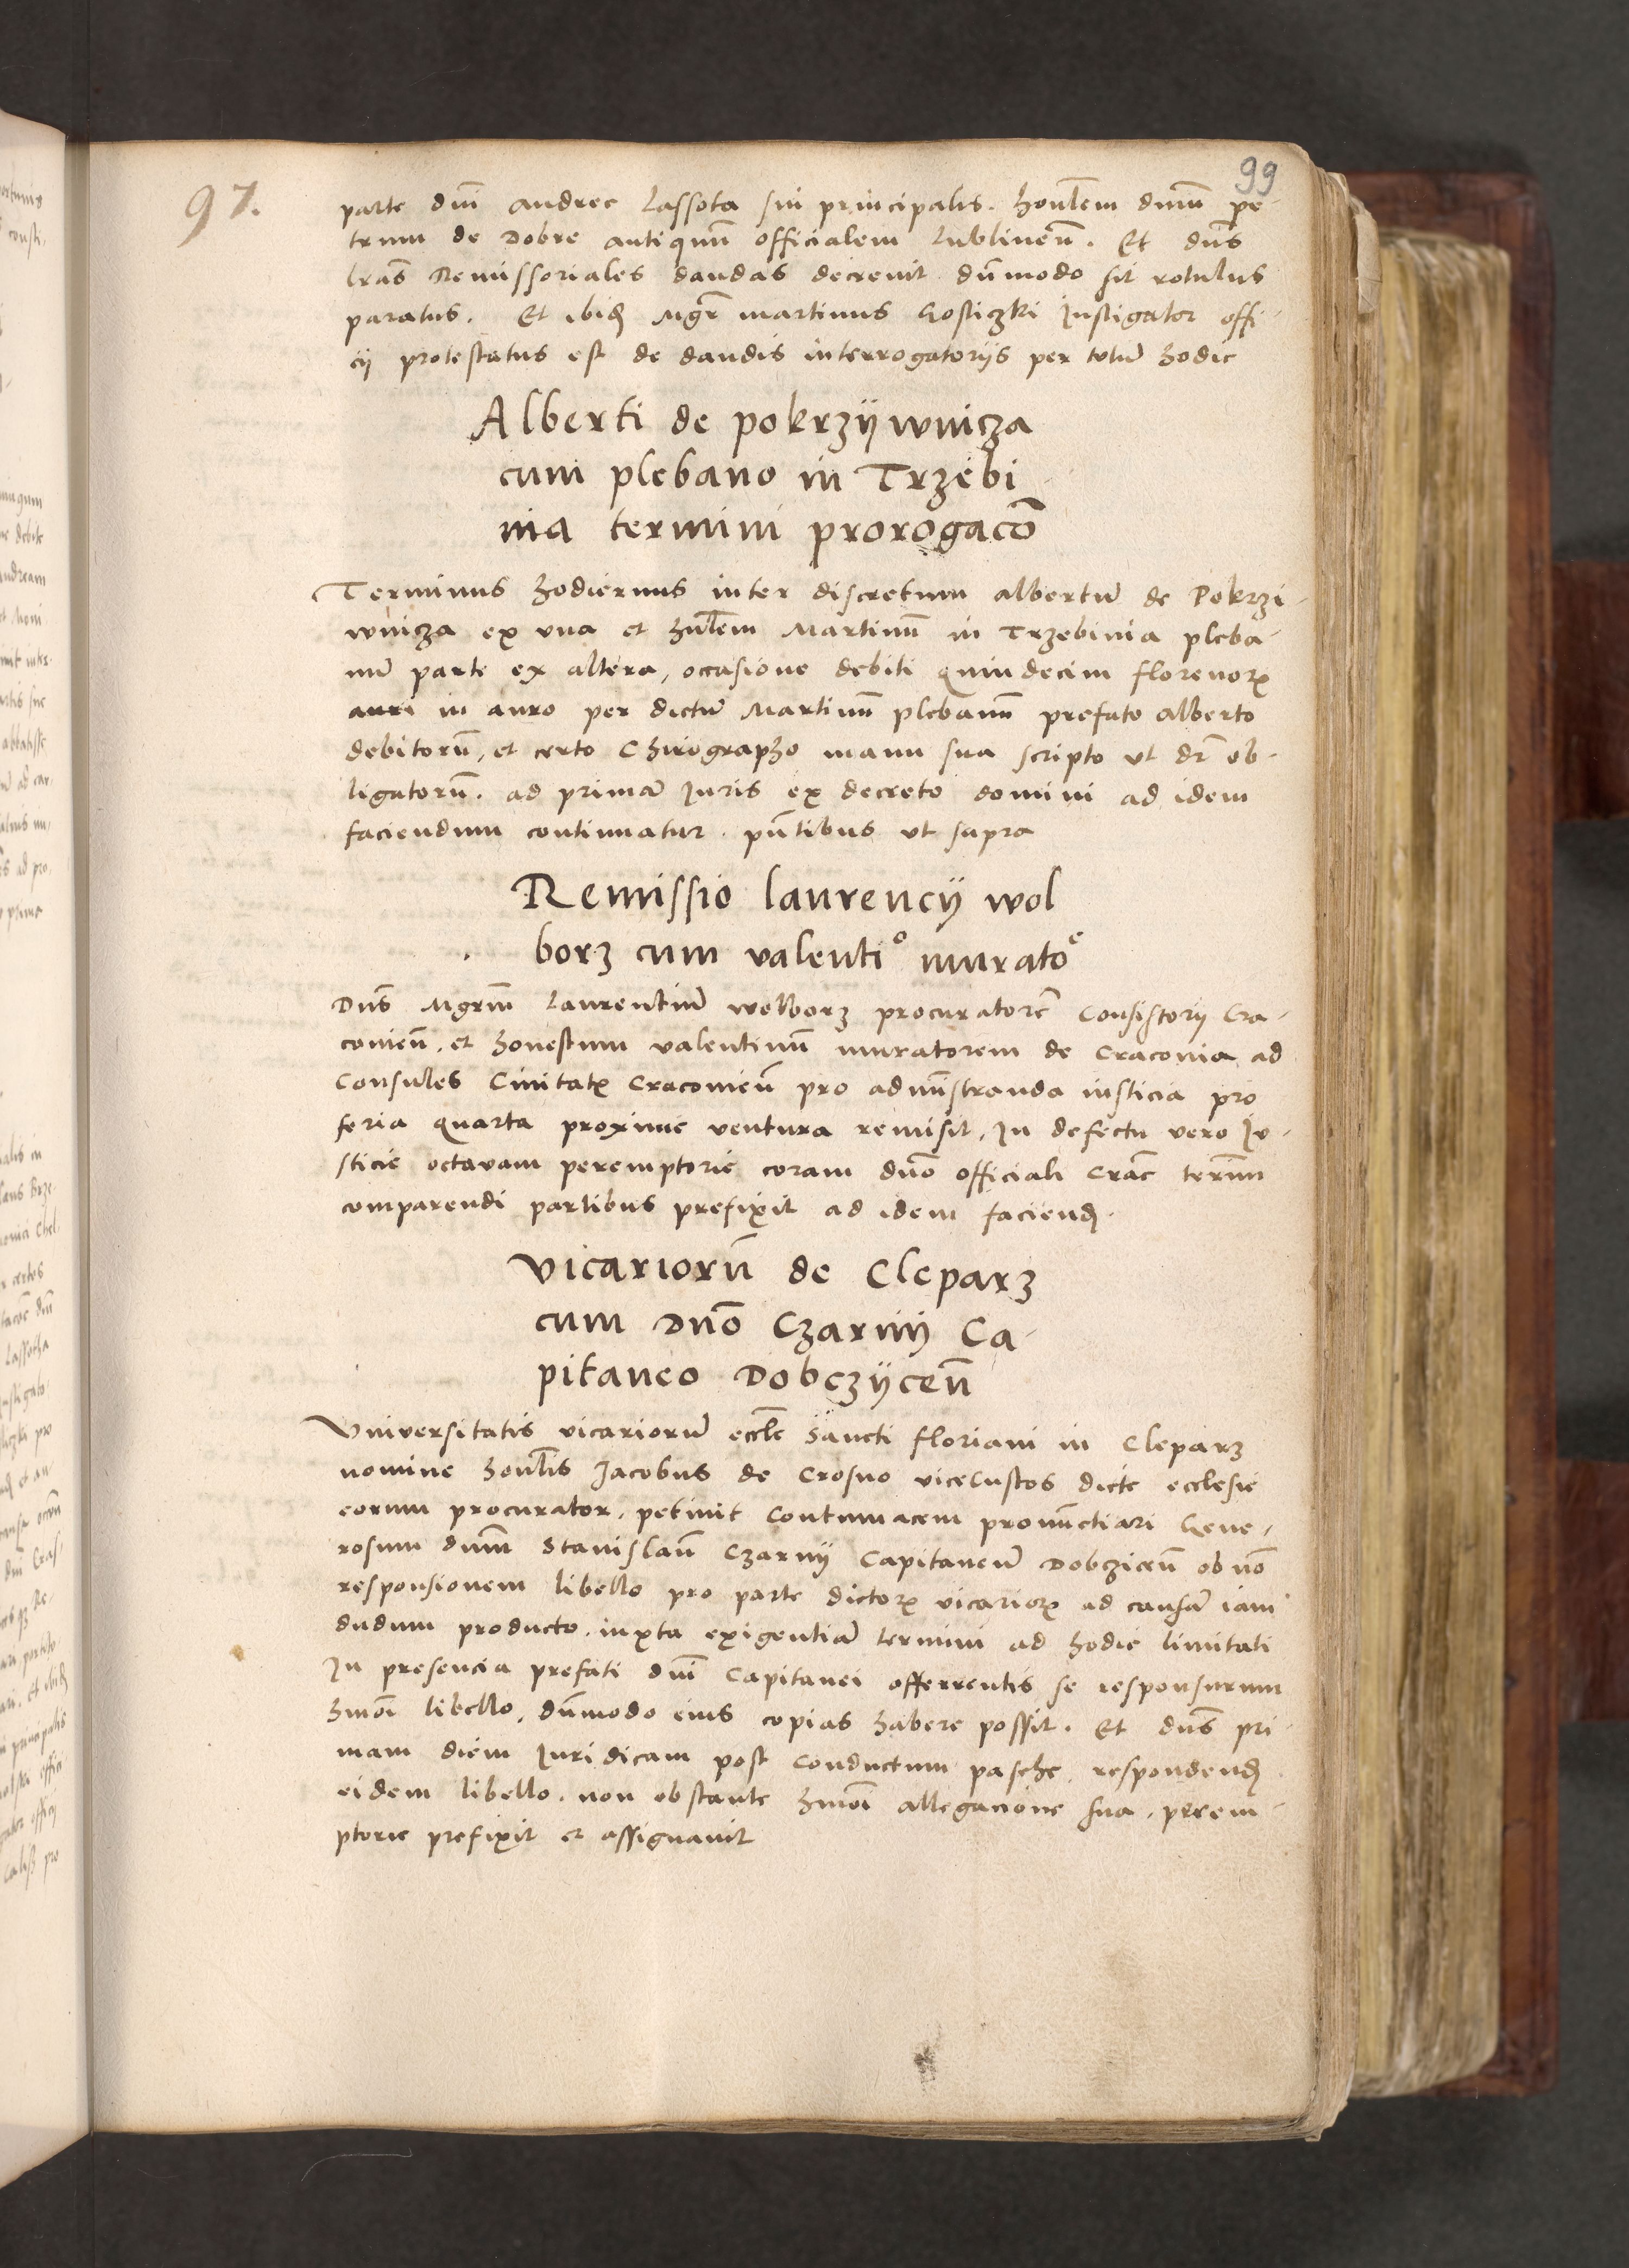 99
97.
parte dni andree Lassota sui principalis. honlem dnum pe-
trum de Dobre antiquum officialem Lublinen. Et dns
lras Remissoriales dandas decrevit dummodo sit rotulus
paratus. Et ibid Mgr martinus Gosliczki Instigator offi-
cij protestatus est de dandis interrogatorijs per totum hodie
Alberti de pokrzijwnicza
cum plebano in Trzebi
nia termini prorogaco
Terminus hodiernus inter discretum albertum de Pokrzi-
wnicza ex una et hnlem Martinum in Trzebinia pleba-
num parte ex altera, occasione debiti quindecim florenorum
auri in auro per dictum Martinum plebanum prefato alberto
debitorum, et certo Chirographo manu sua scripto ut dr ob-
ligatorum. ad primam Juris ex decreto domini ad idem
faciendum continuatur. pntibus ut supra
Remissio laurencij wol
borz cum valentio muratoe
Dns Mgrum Laurentium wolborz procuratorem Consistorij Cra-
covien, et honestum valentinum muratorem de Cracovia ad
Consules Civitatis Cracovien pro administranda iusticia pro
feria quarta proxime ventura remisit, In defectu vero Ju-
sticie octavam peremptorie coram dno officiali Crac termin
comparendi partibus prefixit ad idem faciend.
Vicariorum de Cleparz
cum Dno Czarnij Ca-
pitaneo Dobczijcen
Universitatis vicariorum eccle Sancti floriani in Cleparz
nomine honlis Jacobus de Crosno vicecustos dicte ecclesie
eorum procurator, petivit Contumacem pronunctiari Gene-
rosum dnum Stanislaum Czarnij Capitaneum Dobczicen ob no
responsionem libello pro parte dictorum vicariorum ad causam iam
dudum producto, iuxta exigentiam termini ad hodie limitati
In presencia prefati dni Capitanei offerrentis se responsurum
hmoi libello, dummodo eius copias habere possit. Et dns pri-
mam diem Juridicam post Conductum pasche, respondend
eidem libello, non obstante hmoi allegacione sua, perem-
ptorie prefixit et assignavit